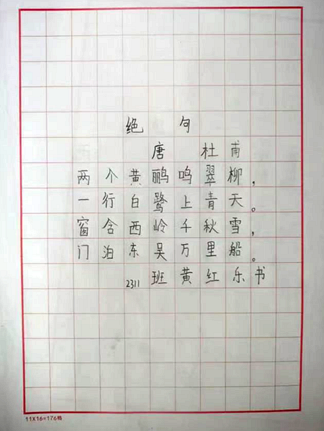 绝句
唐 杜甫
两个黄鹂鸣翠柳，
一行白鹭上青天。
窗含西岭千秋雪，
门泊东吴万里船。
2311班黄红乐书
11X16=176格